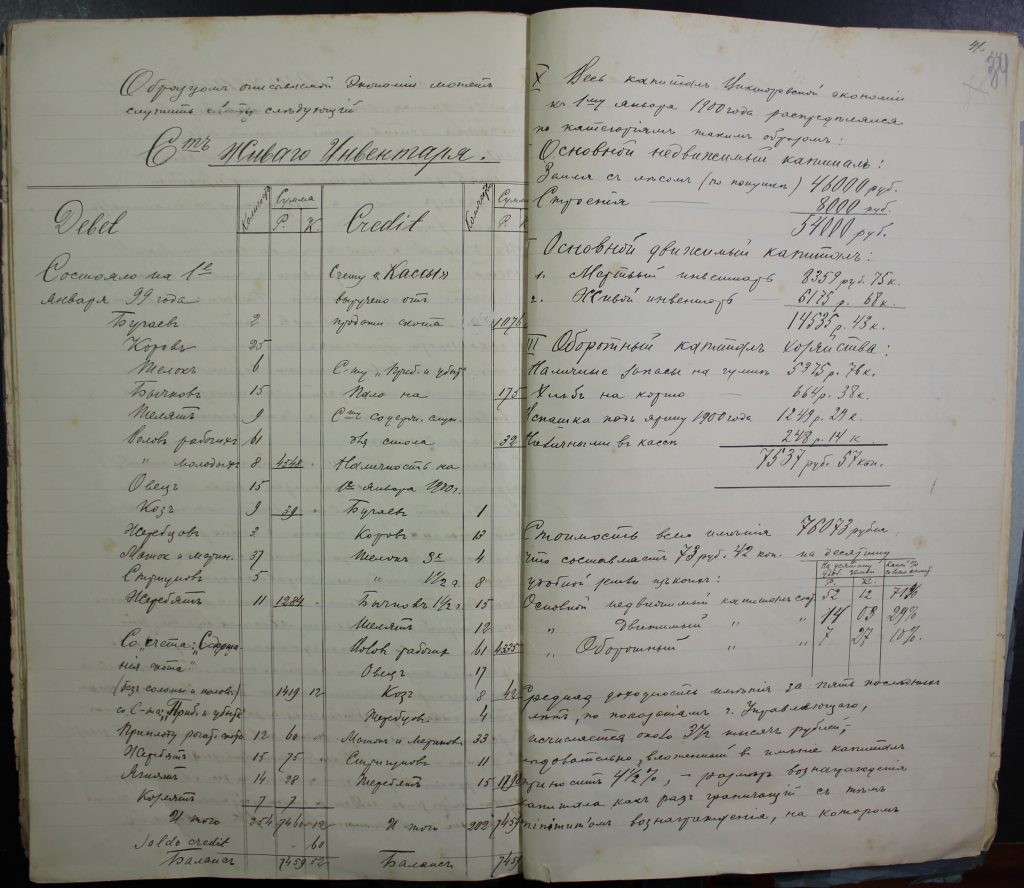 Образцомъ описаваемой Экономіи можетъ
служить слѣдующій
Стъ Живаго Инвентаря.
Debet
Сумма
Р. К.
Credit
Сумма
Р.
Состояло на 1ое
января 99 года
Бугаевъ 2
Коровъ 25
Телокъ 6
Бычковъ 15
Телятъ 9
Воловъ рабочихъ 61
" молодыхъ 8 4348 "
Овецъ 15
Козъ 9 39 "
Жеребцовъ 3
Матокъ и мерин. 37
Стригуновъ 5
Жеребятъ 11 1284
Со "счета: Содержа
нія скота"
(безъ соломы и половы) 1419 12
со С-та "Приб. и убыт."
Приплоту рогат. скота 12 60 "
Жеребятъ 15 75 "
Ягнятъ 14 28 "
Козлятъ 7 7 "
И того 254 7460 12
Saldo credit 60
Балансъ 7459 52
Счету "Кассы"
выручено отъ
продажи скота 1076
С-ту "Приб. и убыт."
Пало на 175
Стъ содерж. служ.
для стола 32
Наличность на
1ое января 1900 г.
Бугаевъ 1
Коровъ 13
Телокъ 3х 4
" 1 1/2 г. 8
Бычковъ 1 1/2 г. 15
Телятъ 12
Воловъ рабочихъ 61 4335
Овецъ 17
Козъ 8 42
Жеребцов. 4
Матокъ и Мериновъ 33
Стригуновъ 11
Жеребятъ 15
И того 202 7459
Балансъ 7459
41.
X Весь капиталъ Викторовской экономіи
къ 1му января 1900 года распредѣлялся
по категоріямъ такимъ образомъ:
Основной недвижимый капиталъ:
Земля съ лѣсомъ (по покупкѣ) 46000 руб.
Строенія — 8000 руб.
54000 руб.
Основной движимый капиталъ:
1. Мертвый инвентарь 8359 руб. 75 к.
2. Живой инвентарь — 6175 р. 68 к.
14535 р. 43 к.
III Оборотный капиталъ хозяйства:
Наличные запасы на гумнѣ 5375 р. 76 к.
Хлѣбъ на кормъ — 664 р. 38 к.
Вспашка подъ ярину 1900 года 1249 р. 29 к.
Наличными въ кассѣ 248 р. 14 к.
7537 руб. 57 коп.
Стоимость всего имѣнія 76073 рубля
что составляетъ 73 руб. 42 коп. на десятину
удобной земли причемъ:
На десятину
удоб. земли
Р. К.
Основной недвижимый капиталъ сост. 52 12 71%
" Движимый " " 14 03 29%
" Оборотный " " 7 27 10%.
Средняя доходность имѣнія за пять послѣднихъ
лѣтъ, по показаніямъ г. Управляющаго,
исчисляется около 3 1/2 тысячъ рублей;
слѣдовательно, вложенный въ имѣніе капиталъ
приноситъ 4 1/2%, — размѣръ вознагражденія
капитала какъ разъ граничащій съ тѣмъ
вознагражденія, на которомъ